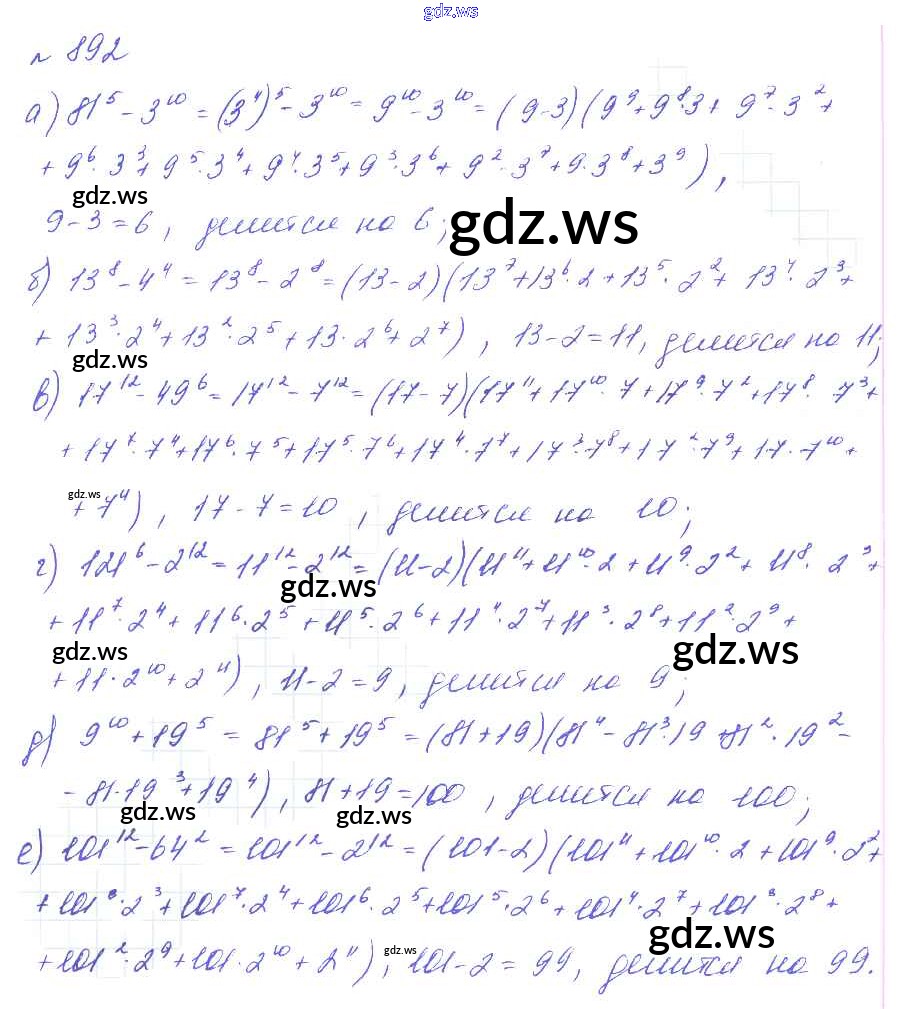 gdz.ws
№ 892
а) 81⁵ - 3¹⁰ = (3⁴)⁵ - 3¹⁰ = 9¹⁰ - 3¹⁰ = (9-3)(9⁹ + 9⁸·3 + 9⁷·3² +
+ 9⁶·3³ + 9⁵·3⁴ + 9⁴·3⁵ + 9³·3⁶ + 9²·3⁷ + 9·3⁸ + 3⁹),
gdz.ws
9-3=6, делится на 6;
gdz.ws
б) 13⁸ - 4⁴ = 13⁸ - 2⁸ = (13-2)(13⁷ + 13⁶·2 + 13⁵·2² + 13⁴·2³ +
+ 13³·2⁴ + 13²·2⁵ + 13·2⁶ + 2⁷), 13-2=11, делится на 11;
gdz.ws
в) 17¹² - 49⁶ = 17¹² - 7¹² = (17-7)(17¹¹ + 17¹⁰·7 + 17⁹·7² + 17⁸·7³ +
+ 17⁷·7⁴ + 17⁶·7⁵ + 17⁵·7⁶ + 17⁴·7⁷ + 17³·7⁸ + 17²·7⁹ + 17·7¹⁰ +
gdz.ws
+ 7¹¹), 17-7=10, делится на 10;
г) 121⁶ - 2¹² = 11¹² - 2¹² = (11-2)(11¹¹ + 11¹⁰·2 + 11⁹·2² + 11⁸·2³ +
gdz.ws
+ 11⁷·2⁴ + 11⁶·2⁵ + 11⁵·2⁶ + 11⁴·2⁷ + 11³·2⁸ + 11²·2⁹ +
gdz.ws
gdz.ws
+ 11·2¹⁰ + 2¹¹), 11-2=9, делится на 9;
д) 9¹⁰ + 19⁵ = 81⁵ + 19⁵ = (81+19)(81⁴ - 81³·19 + 81²·19² -
- 81·19³ + 19⁴), 81+19=100, делится на 100;
gdz.ws
gdz.ws
е) 101¹² - 64² = 101¹² - 2¹² = (101-2)(101¹¹ + 101¹⁰·2 + 101⁹·2² +
+ 101⁸·2³ + 101⁷·2⁴ + 101⁶·2⁵ + 101⁵·2⁶ + 101⁴·2⁷ + 101³·2⁸ +
gdz.ws
gdz.ws
+ 101²·2⁹ + 101·2¹⁰ + 2¹¹), 101-2=99, делится на 99.